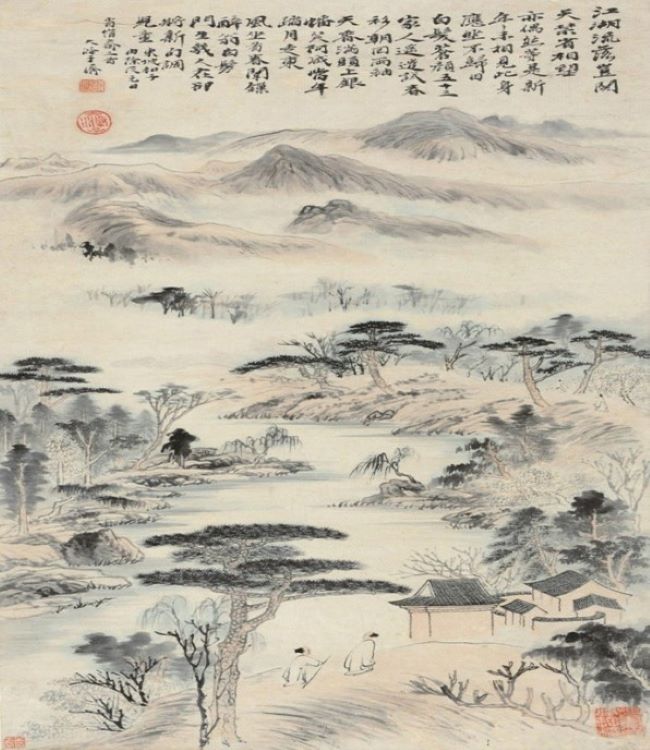 江湖流落豈關
天禁省相望
亦偶然等是新
年未相見此身
應坐不歸田
白髮蒼顏五十三
家人遥遣試春
衫朝回兩袖
天香滿頭上銀
幡笑阿咸當年
踏月走東
風坐看春闈鎖
醉翁白髮
門生幾人在卻
將新句調
兒童東坡和子
由除夜元日
省宿致齋
大滌子濟